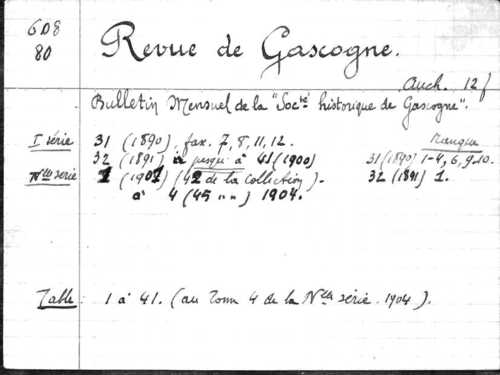 6D8
80
Revue de Gascogne.
Auch. 12 f
Bulletin Mensuel de la "Socté historique de Gascogne".
I série 31 (1890), fax. 7, 8, 11, 12. Manque
32 (1891) à jusqu'à 41 (1900) 31 (1890) 1-4, 6, 9-10.
Nlle série 1 (1901) (42 de la collection). 32 (1891) 1.
à 4 (45 " ") 1904.
Table: 1 à 41. (au Tom 4 de la Nlle série. 1904).